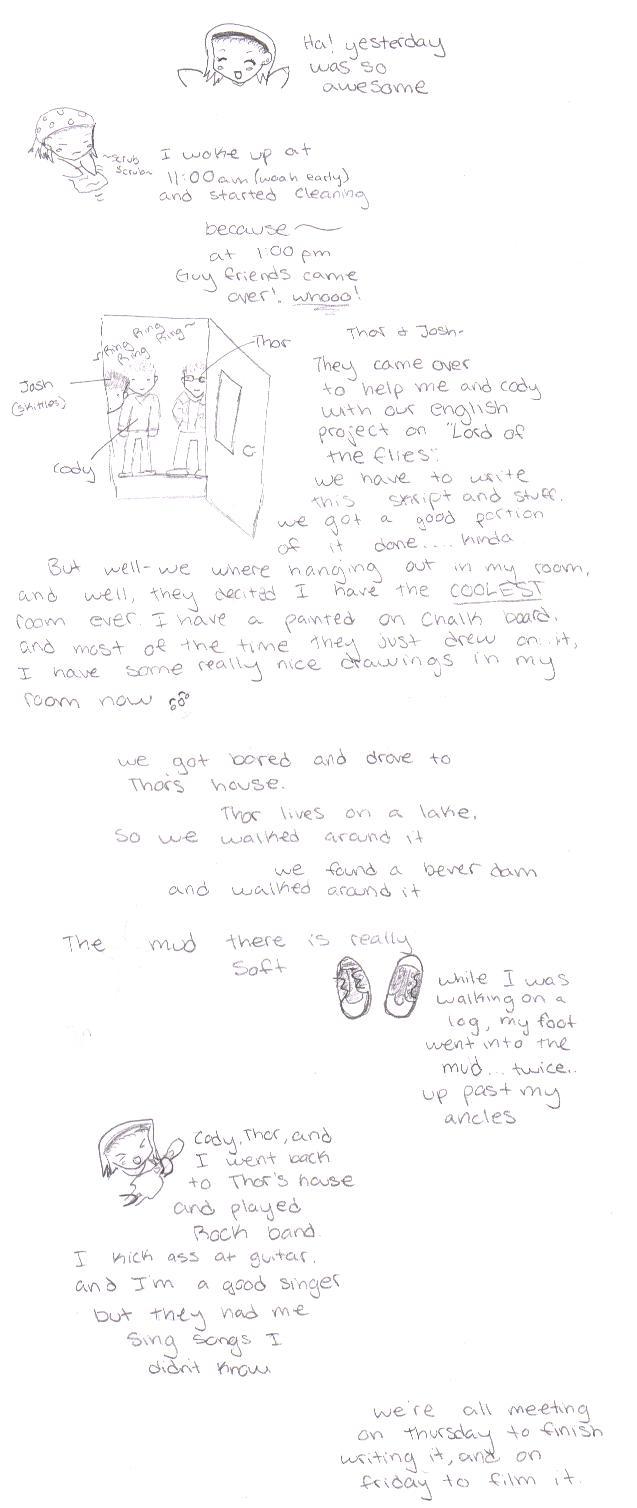 Ha! yesterday
was so
awesome
~scrub
scrub~
I woke up at
11:00am (woah early)
and started cleaning
because ~
at 1:00 pm
Guy friends came
over! whooo!
~Ring Ring
Ring Ring~
Thor
Josh
(skittles)
Cody
Thor & Josh-
They came over
to help me and cody
with our english
project on "Lord of
the flies".
we have to write
this skript and stuff.
we got a good portion
of it done.... kinda
But well- we where hanging out in my room,
and well, they decited I have the COOLEST
room ever. I have a painted on chalk board.
and most of the time they just drew on it,
I have some really nice drawings in my
room now
we got bored and drove to
Thor's house.
Thor lives on a lake.
So we walked around it
we found a bever dam
and walked around it
The mud there is really
soft
while I was
walking on a
log, my foot
went into the
mud... twice..
up past my
ancles
Cody, Thor, and
I went back
to Thor's house
and played
Rock band.
I kick ass at guitar.
and I'm a good singer
but they had me
Sing songs I
didn't know
we're all meeting
on thursday to finish
writing it, and on
friday to film it.